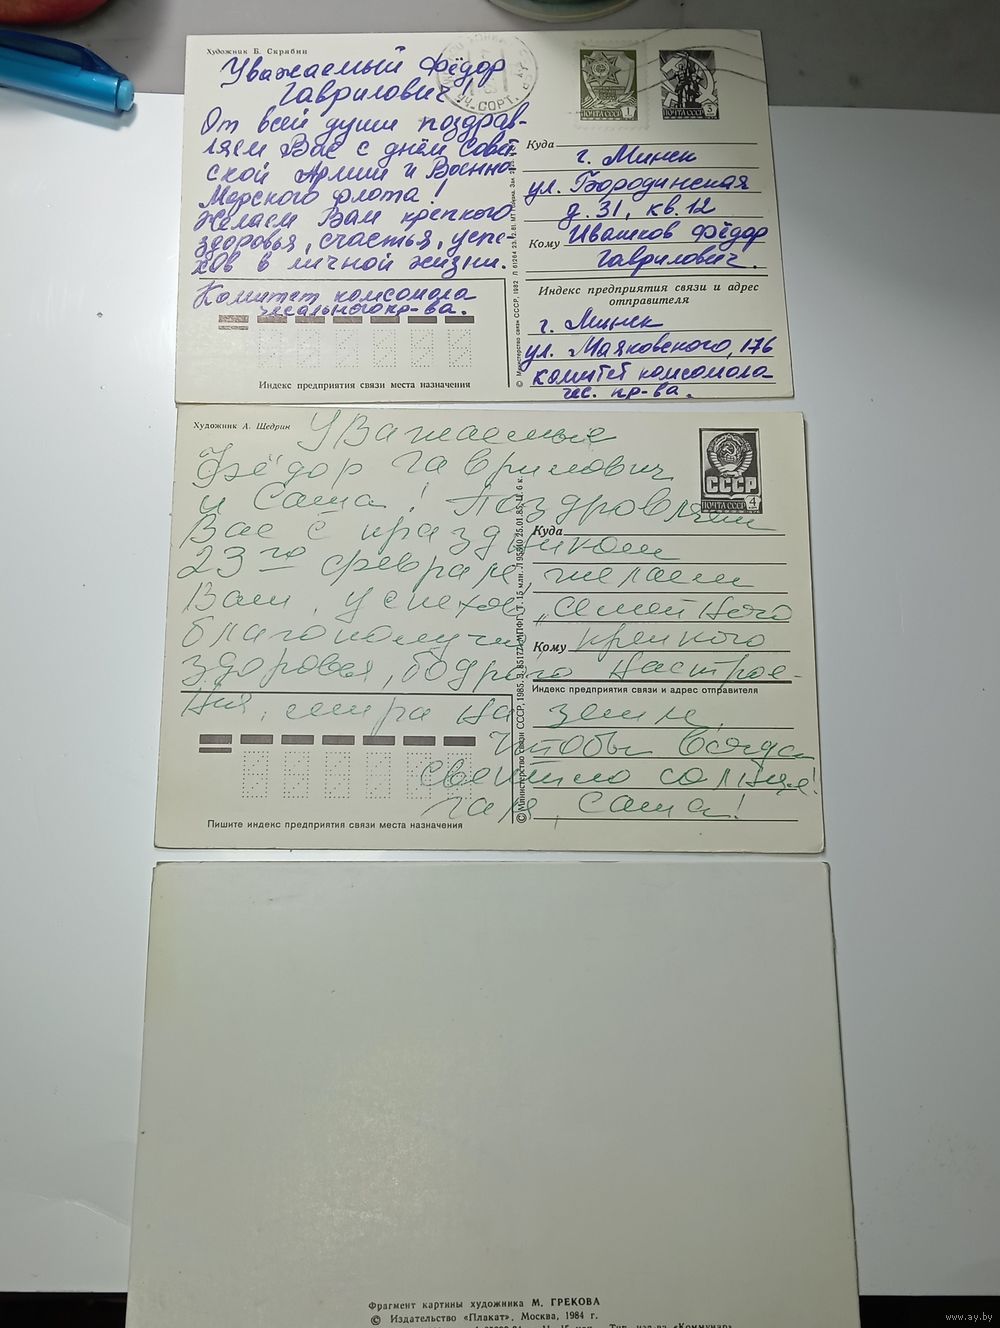 Художник Б. Скрябин
Уважаемый Фёдор
Гаврилович!
От всей души поздрав-
ляем Вас с днём Совет
ской Армии и Военно
Морского флота!
Желаем Вам крепкого
здоровья, счастья, успе-
хов в личной жизни.
Комитет комсомола
чесального пр-ва.
Индекс предприятия связи места назначения
ПОЧТА СССР 1
ПОЧТА СССР 3
Куда
г. Минск
ул. Бородинская
д. 31, кв. 12
Кому Ивашков Фёдор
Гаврилович.
Индекс предприятия связи и адрес
отправителя
г. Минск
ул. Маяковского, 176
комитет комсомола
чес. пр-ва.
© Министерство связи СССР, 1982
Художник А. Щедрин
СССР
ПОЧТА СССР 4
Уважаемые
Фёдор Гаврилович
и Саша! Поздравляем
Вас с праздником
23го февраля, желаем
Вам, успехов, семейного
благополучия крепкого
здоровья, бодрого настрое-
ния, мира на земле,
Чтобы всегда
светило солнце!
Галя, Саша!
Куда
Кому
Индекс предприятия связи и адрес отправителя
Пишите индекс предприятия связи места назначения
© Министерство связи СССР, 1985.
Фрагмент картины художника М. ГРЕКОВА
© Издательство «Плакат», Москва, 1984 г.
www.ay.by